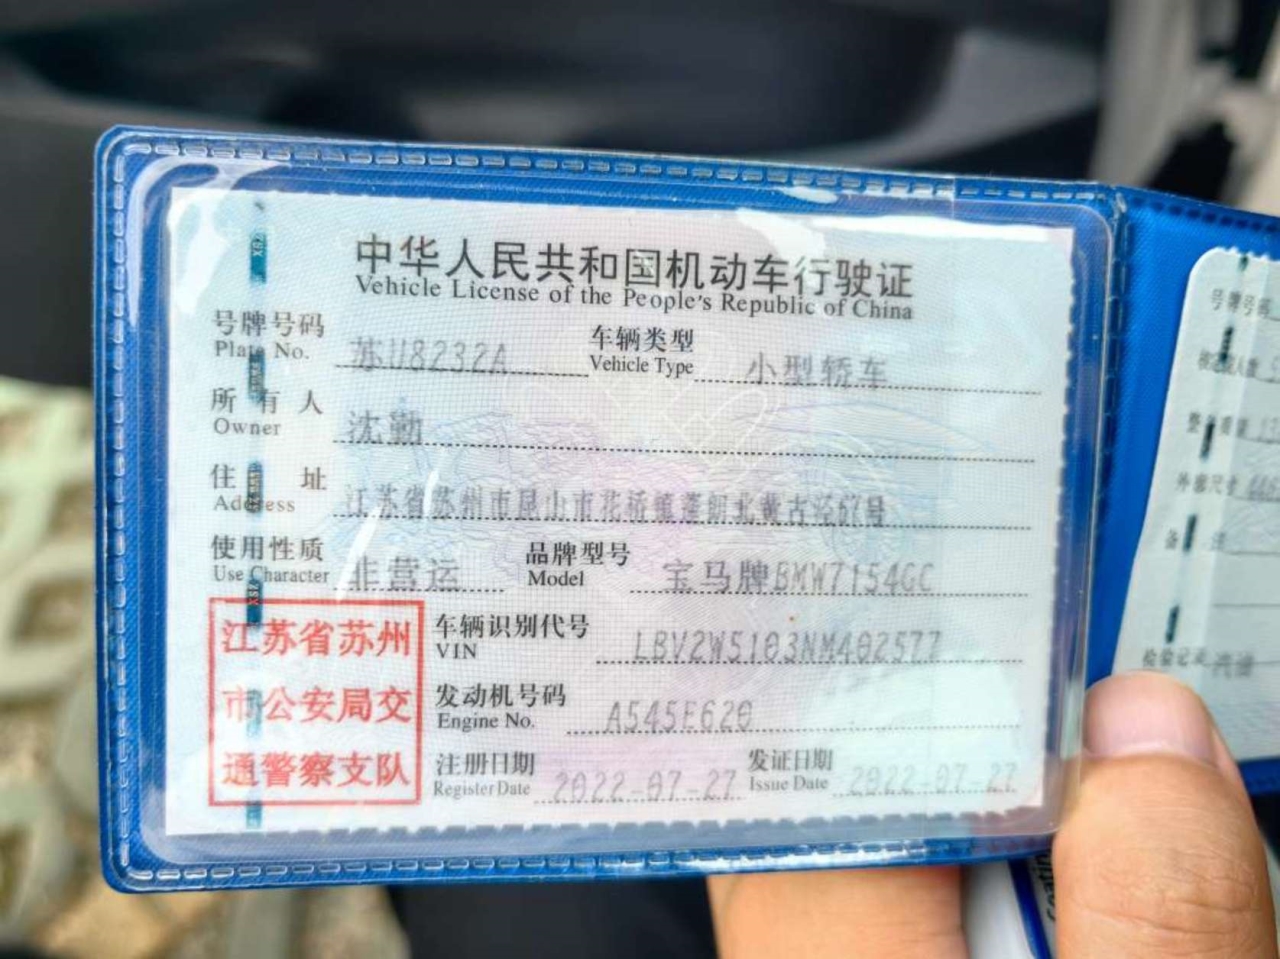 中华人民共和国机动车行驶证
Vehicle License of the People's Republic of China
号牌号码 苏U8232A 车辆类型 小型轿车
Plate No. Vehicle Type
所有人 沈勤
Owner
住址 江苏省苏州市昆山市花桥镇蓬朗北黄古泾67号
Address
使用性质 非营运 品牌型号 宝马牌BMW7154GC
Use Character Model
江苏省苏州
市公安局交
通警察支队
车辆识别代号 LBV2W5103NM402577
VIN
发动机号码 A545E620
Engine No.
注册日期 2022-07-27 发证日期 2022-07-27
Register Date Issue Date
号牌号码
整备质量
外廓尺寸
备注
检验记录 汽油